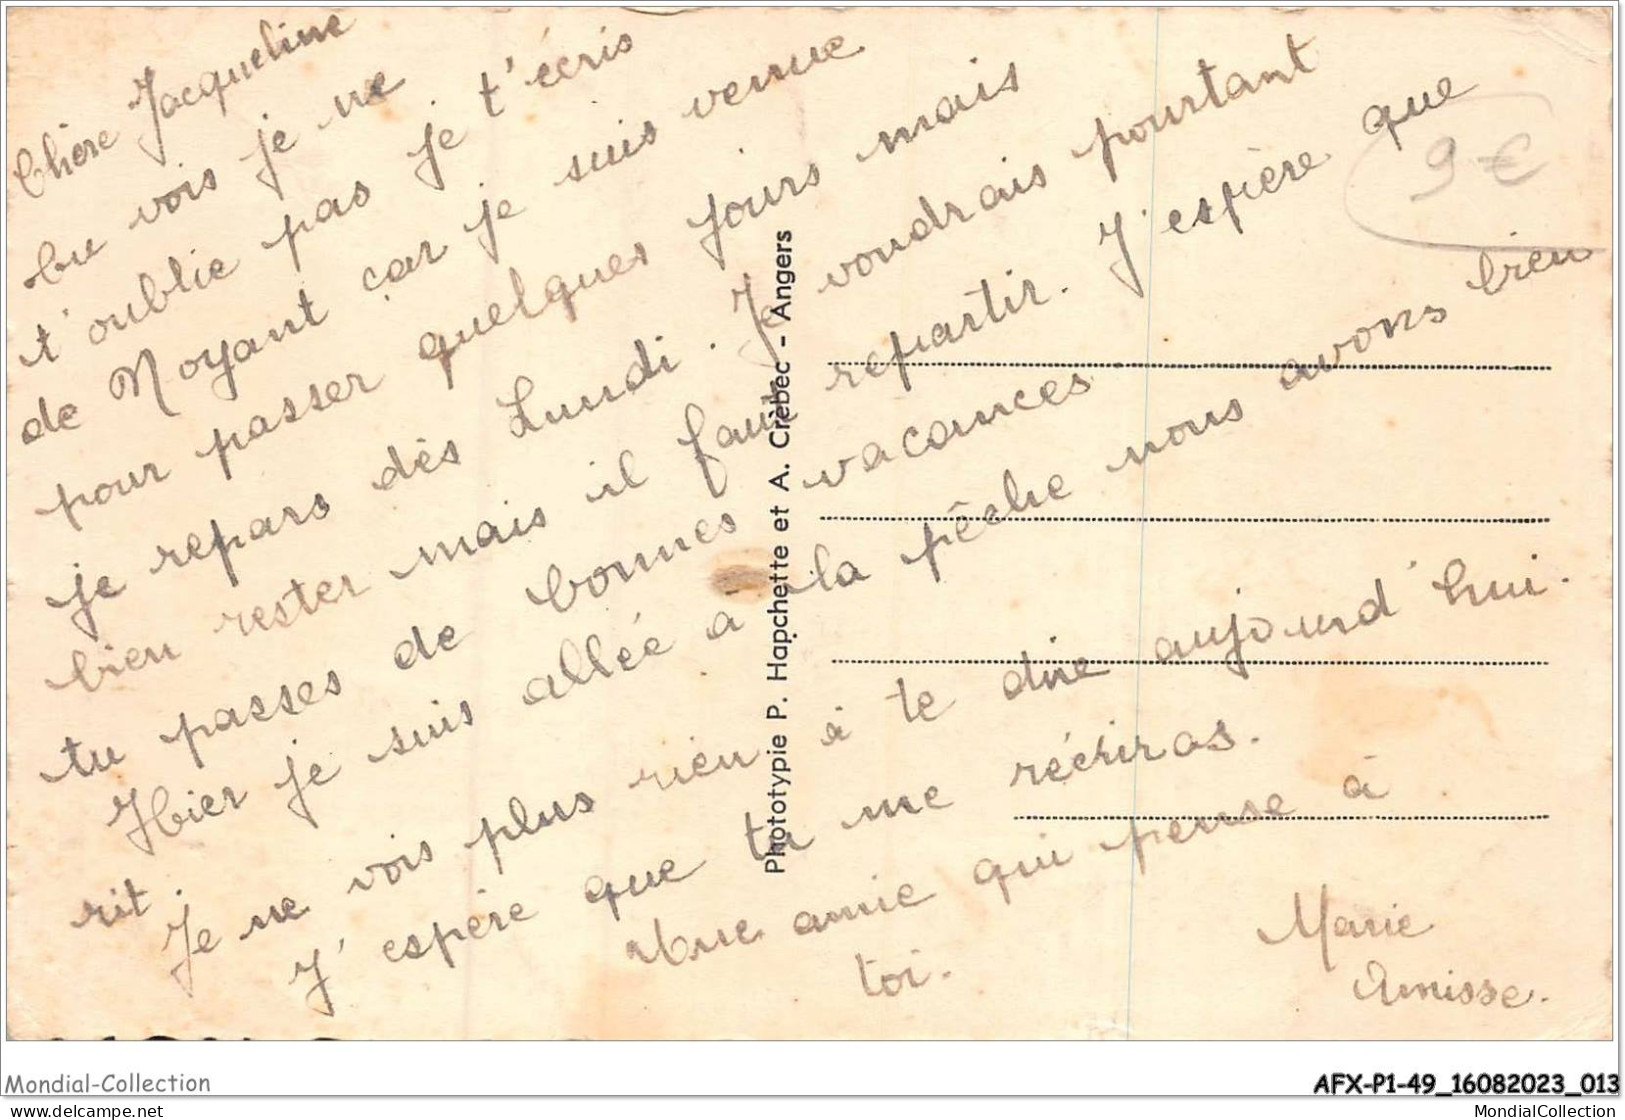 Chère Jacqueline
tu vois je ne
t'oublie pas je t'écris
de Noyant car je suis venue
pour passer quelques jours mais
je repars dès Lundi. Je voudrais pourtant
bien rester mais il faut repartir. J'espère que
tu passes de bonnes vacances
Hier je suis allée à la pêche nous avons bien
rit.
Je ne vois plus rien à te dire aujourd'hui.
J'espère que tu me récriras.
Une amie qui pense à
toi.
Marie
Amisse.
9 €
Phototypie P. Hapchette et A. Crèbec - Angers
Mondial-Collection
AFX-P1-49_16082023_013
delcampe.net
MondialCollection